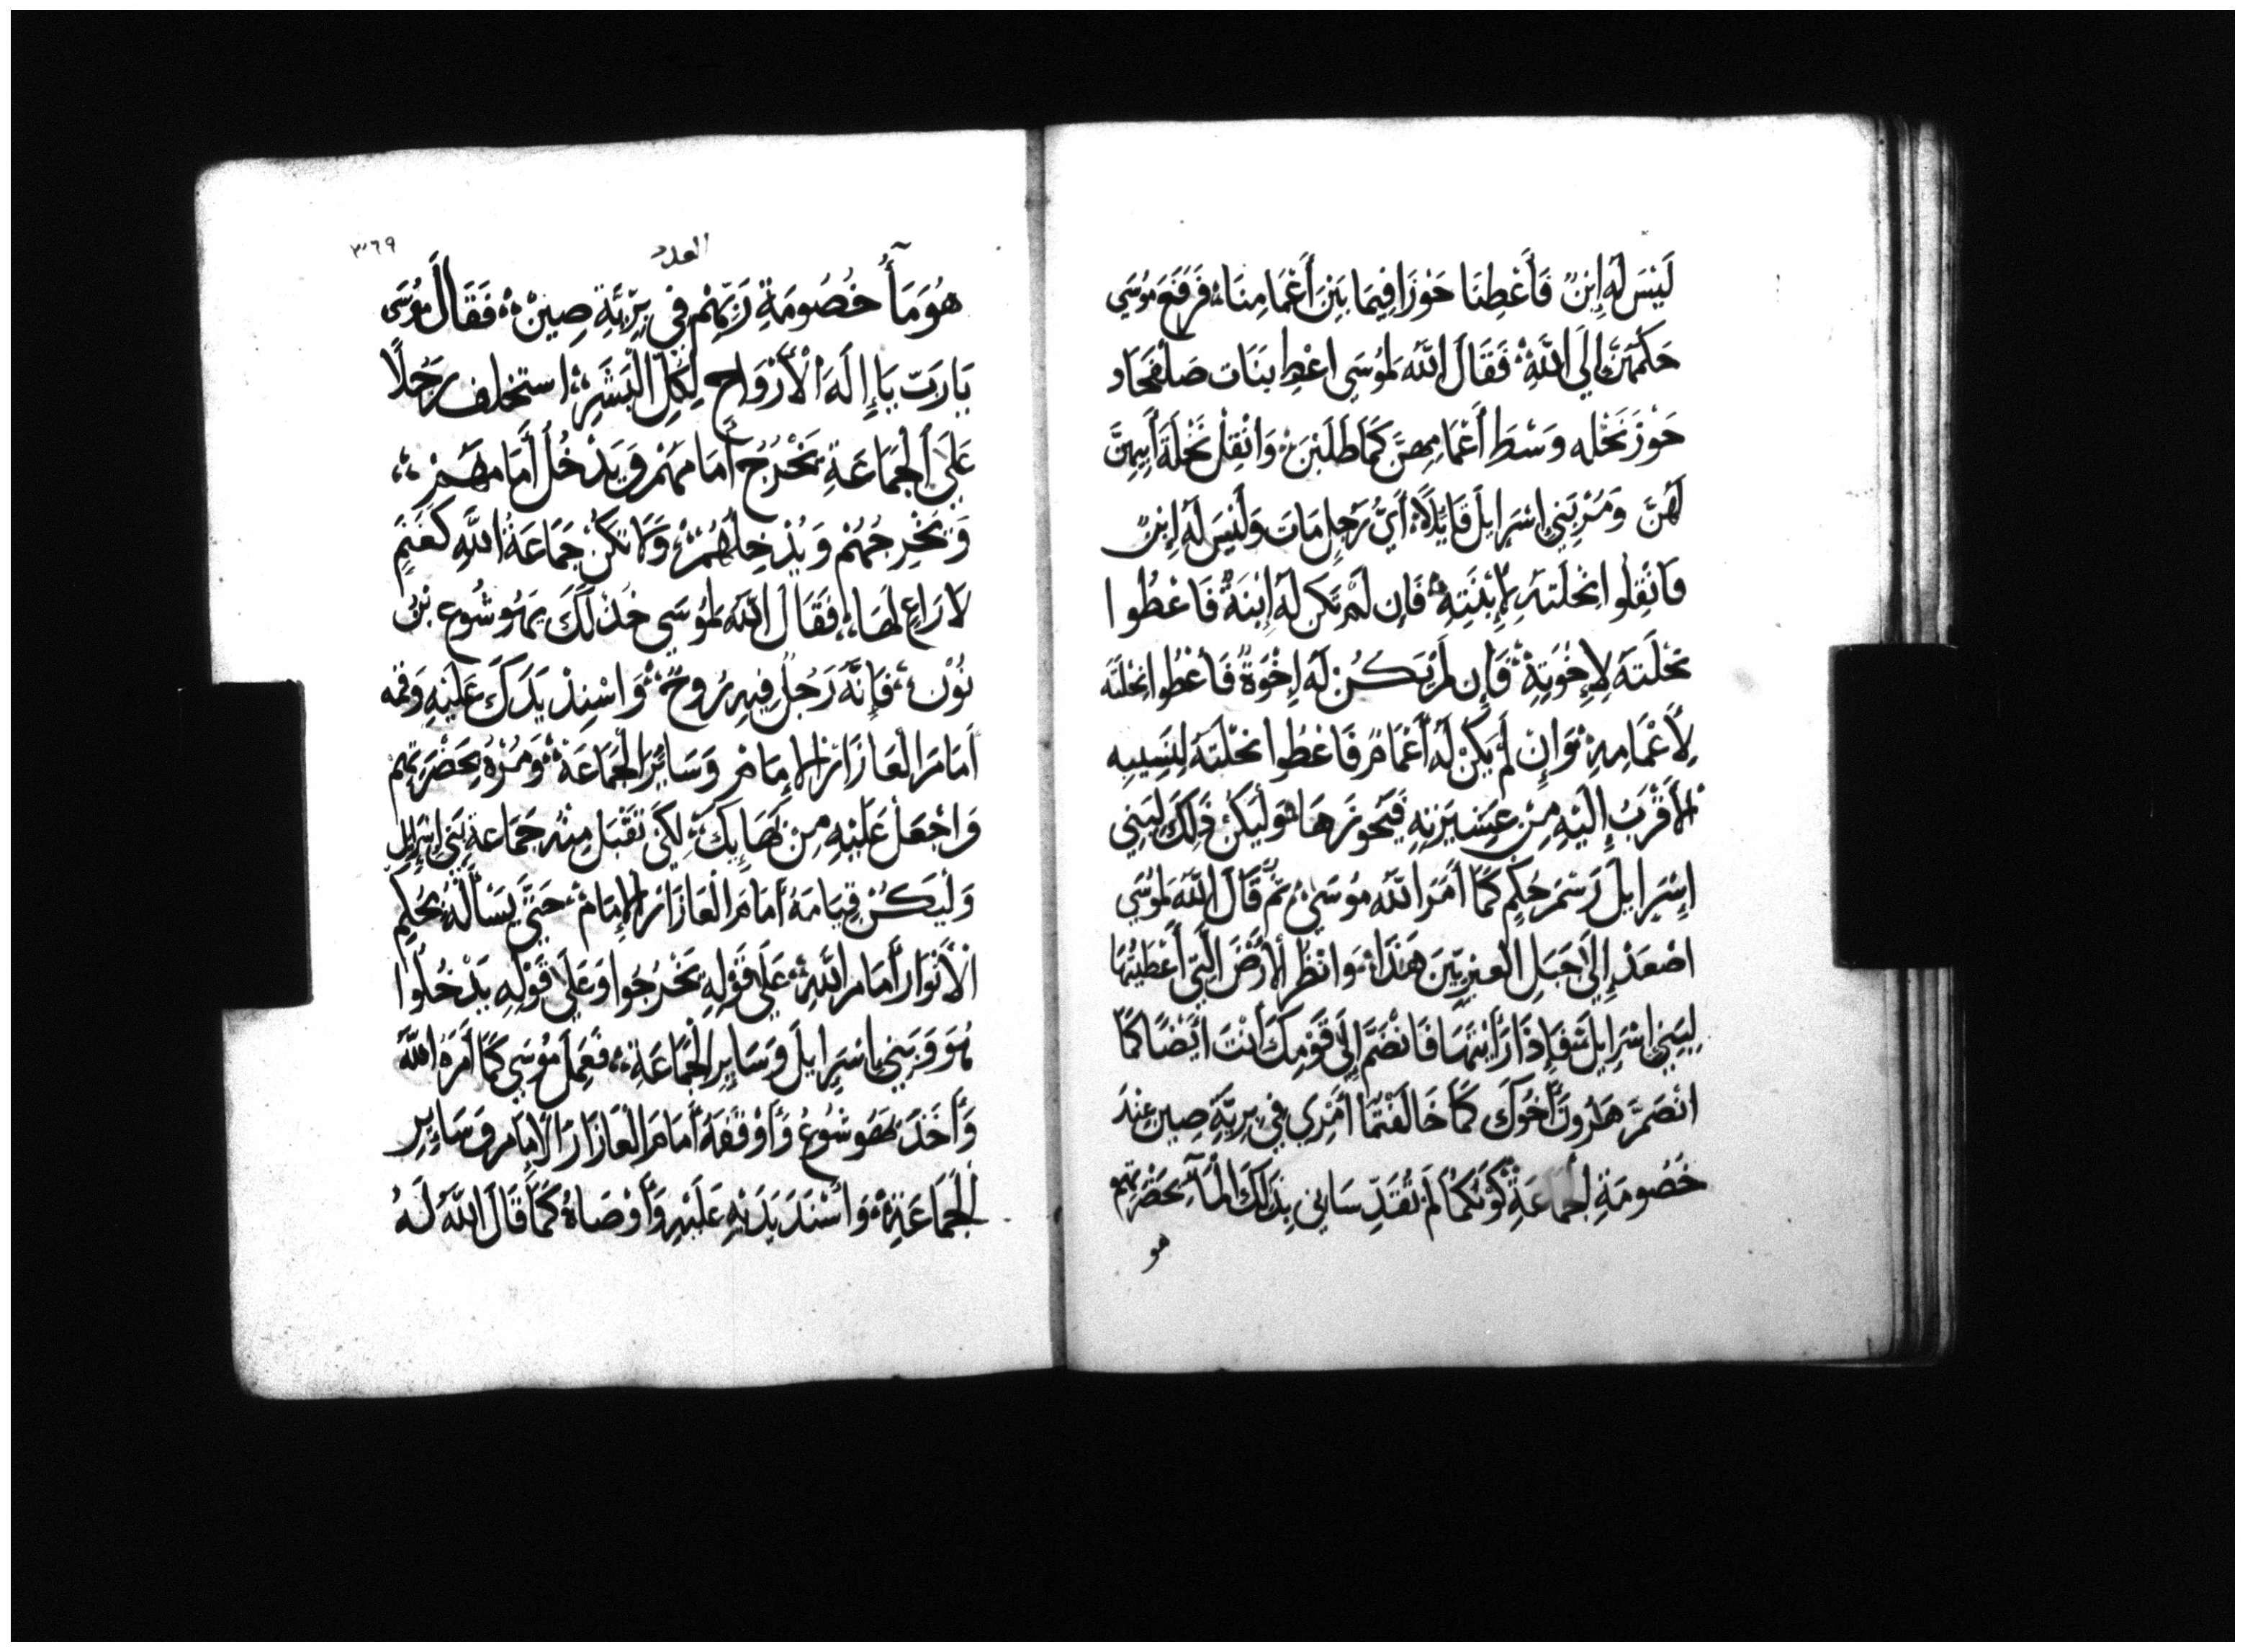 لَيْسَ لَهُ اِبْنٌ فَأَعْطِنَا حَوْزًا فِيمَا بَيْنَ أَعْمَامِنَا، فَرَفَعَ مُوسَى
حُكْمَهُنَّ إِلَى اللَّهِ، فَقَالَ اللَّهُ لِمُوسَى اعْطِ بَنَات صَلفحَاد
حَوْزَ نَحْله وَسْطَ أَعْمَامِهِنَّ كَمَا طَلَبْنَ، وَانْقِلْ نَحْلَةَ أَبِيهِنَّ
لَهُنَّ وَمُرْ بَنِي اِسْرَايِلَ قَايِلًا، أَيُّ رَجُلٍ مَاتَ وَلَيْسَ لَهُ اِبْنٌ
فَانْقِلُوا نِحْلَتَهُ لِإِبْنَتِهِ، فَإِن لَمْ تَكن لَهُ اِبْنَةٌ فَاعْطُوا
نَحْلَتَهُ لِإِخْوَتِهِ، فَإِن لَمْ يَكُنْ لَهُ اِخْوَةٌ فَأعْطُوا نِحْلَتَهُ
لِأَعْمَامِهِ، وَإِنْ لَمْ يَكُنْ لَهُ أَعْمَامٌ فَاعْطُوا نحْلَتَهُ لِنَسِيبِه
الأَقْرَبُ إِلَيْهِ مِنْ عَشِيرَتِهِ فَيَحُوزَهَا، وَلْيَكُنْ ذَلِكَ لِبَنِي
اِسْرَايِلَ رَسْمَ حُكْمٍ كَمَا أَمَرَ اللَّهُ مُوسَى، ثُمَّ قَالَ اللَّهُ لِمُوسَى
اصْعَدْ إِلَى جَبَلِ العِبْرِيّينَ هَذَا، وَانْظُرِ الأَرْضَ الَّتِي أَعْطَيْتُهَا
لِبَنِي اِسْرَايِلَ، فَإِذَا رَأَيْتَهَا فَانْضَمَّ إِلَى قَوْمِكَ أَنْتَ أَيْضًا كَمَا
انْضَمَّ هَارُونُ أَخُوكَ كَمَا خَالَفْتُمَا أَمْرِي فِي بَرِيَّةِ صِين عِنْدَ
خُصُومَةِ الجَمَاعَةِ كَوْنَكُمَا لَمْ تُقَدِّسَانِي بِذَلِكَ الْمَآءِ بِحَضْرَتِهِم
هو
العدد
٣٦٩
هُوَ مَآءُ خُصُومَةِ رَبِّهِمْ فِي بَرِّيَّةِ صِينْ، فَقَالَ مُوسَى
يَا رَبّ يَا إِلَهَ الْأَرْوَاحِ لِكُلِّ الْبَشَرِ، استخلف رَجُلًا
عَلَى الْجَمَاعَةِ يَخْرُجُ أَمَامَهُمْ وَيَدْخُلُ أَمَامَهُمْ،
وَيُخْرِجُهُمْ وَيُدْخِلُهُمْ، وَلَا تَكُنْ جَمَاعَةُ اللَّهِ كَغَنَمٍ
لَا رَاعٍ لَهَا، فَقَالَ اللَّهُ لِمُوسَى خُذْ لَكَ يَهُوشُوع بْنُ
نُوْن، فَإِنَّهُ رَجُلٌ فِيهِ رُوحٌ، وَاسْنِدْ يَدَكَ عَلَيْهِ وَقفه
أَمَامَ الْعَازَارَ الْإِمَامِ وَسَايَرِ الجَمَاعَة، وَمُرْهُ بِحَضْرَتِهِم
وَاجْعَلْ عَلَيْهِ مِنْ بَهَايِكَ، لِكَي تَقْبَل مِنْهُ جَمَاعَة بَنِي اِسْرَايِل
وَلْيَكُنْ قِيَامَهُ أَمَامَ الْعَازَارَ الْإِمَامْ، حَتَّى يَسْأَلَهُ بِحُكْمِ
الْأَنْوَارِ أَمَامَ اللَّهِ، عَلَى قَوْلِهِ يَخْرُجُوا وَعَلَى قَوْلِهِ يَدْخُلُوا
هُوَ وَبَنِي اِسْرَايِلَ وَسَايِرِ الْجَمَاعَةِ، فَعَمِلَ مُوسَى كَمَا أَمَرَهُ اللَّهُ
وَأَخَذَ يَهُوشُوعُ وَأَوْقَفَهُ أَمَامَ الْعَازَارَ الْإِمَامِ وَسَايِرِ
الْجَمَاعَةِ، وَأَسْنَدَ يَدَيْهِ عَلَيْهِ وَأَوْصَاهُ كَمَا قَالَ اللَّهُ لَهُ